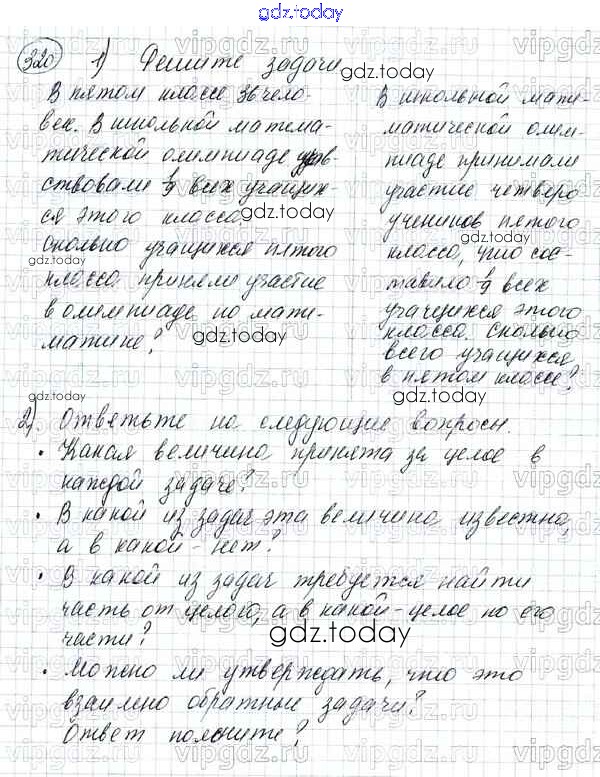 gdz.today
320 1) Решите задачи
gdz.today
В пятом классе 36 чело-
век. В школьной матема-
тической олимпиаде уча-
ствовали 1/9 всех учащих-
ся этого класса.
gdz.today
Сколько учащихся пятого
gdz.today
класса приняли участие
в олимпиаде по мате-
матике?
gdz.today
В школьной мате-
матической олим-
gdz.today
пиаде принимали
участие четверо
учеников пятого
класса, что сос-
gdz.today
тавило 1/9 всех
учащихся этого
класса. Сколько
всего учащихся
в пятом классе?
gdz.today
gdz.today
2). Ответьте на следующие вопросы.
• Какая величина принята за целое в
каждой задаче?
• В какой из задач эта величина известна,
а в какой - нет?
• В какой из задач требуется найти
часть от целого, а в какой - целое по его
части?
gdz.today
• Можно ли утверждать, что это
взаимно обратные задачи?
Ответ поясните?
gdz.today